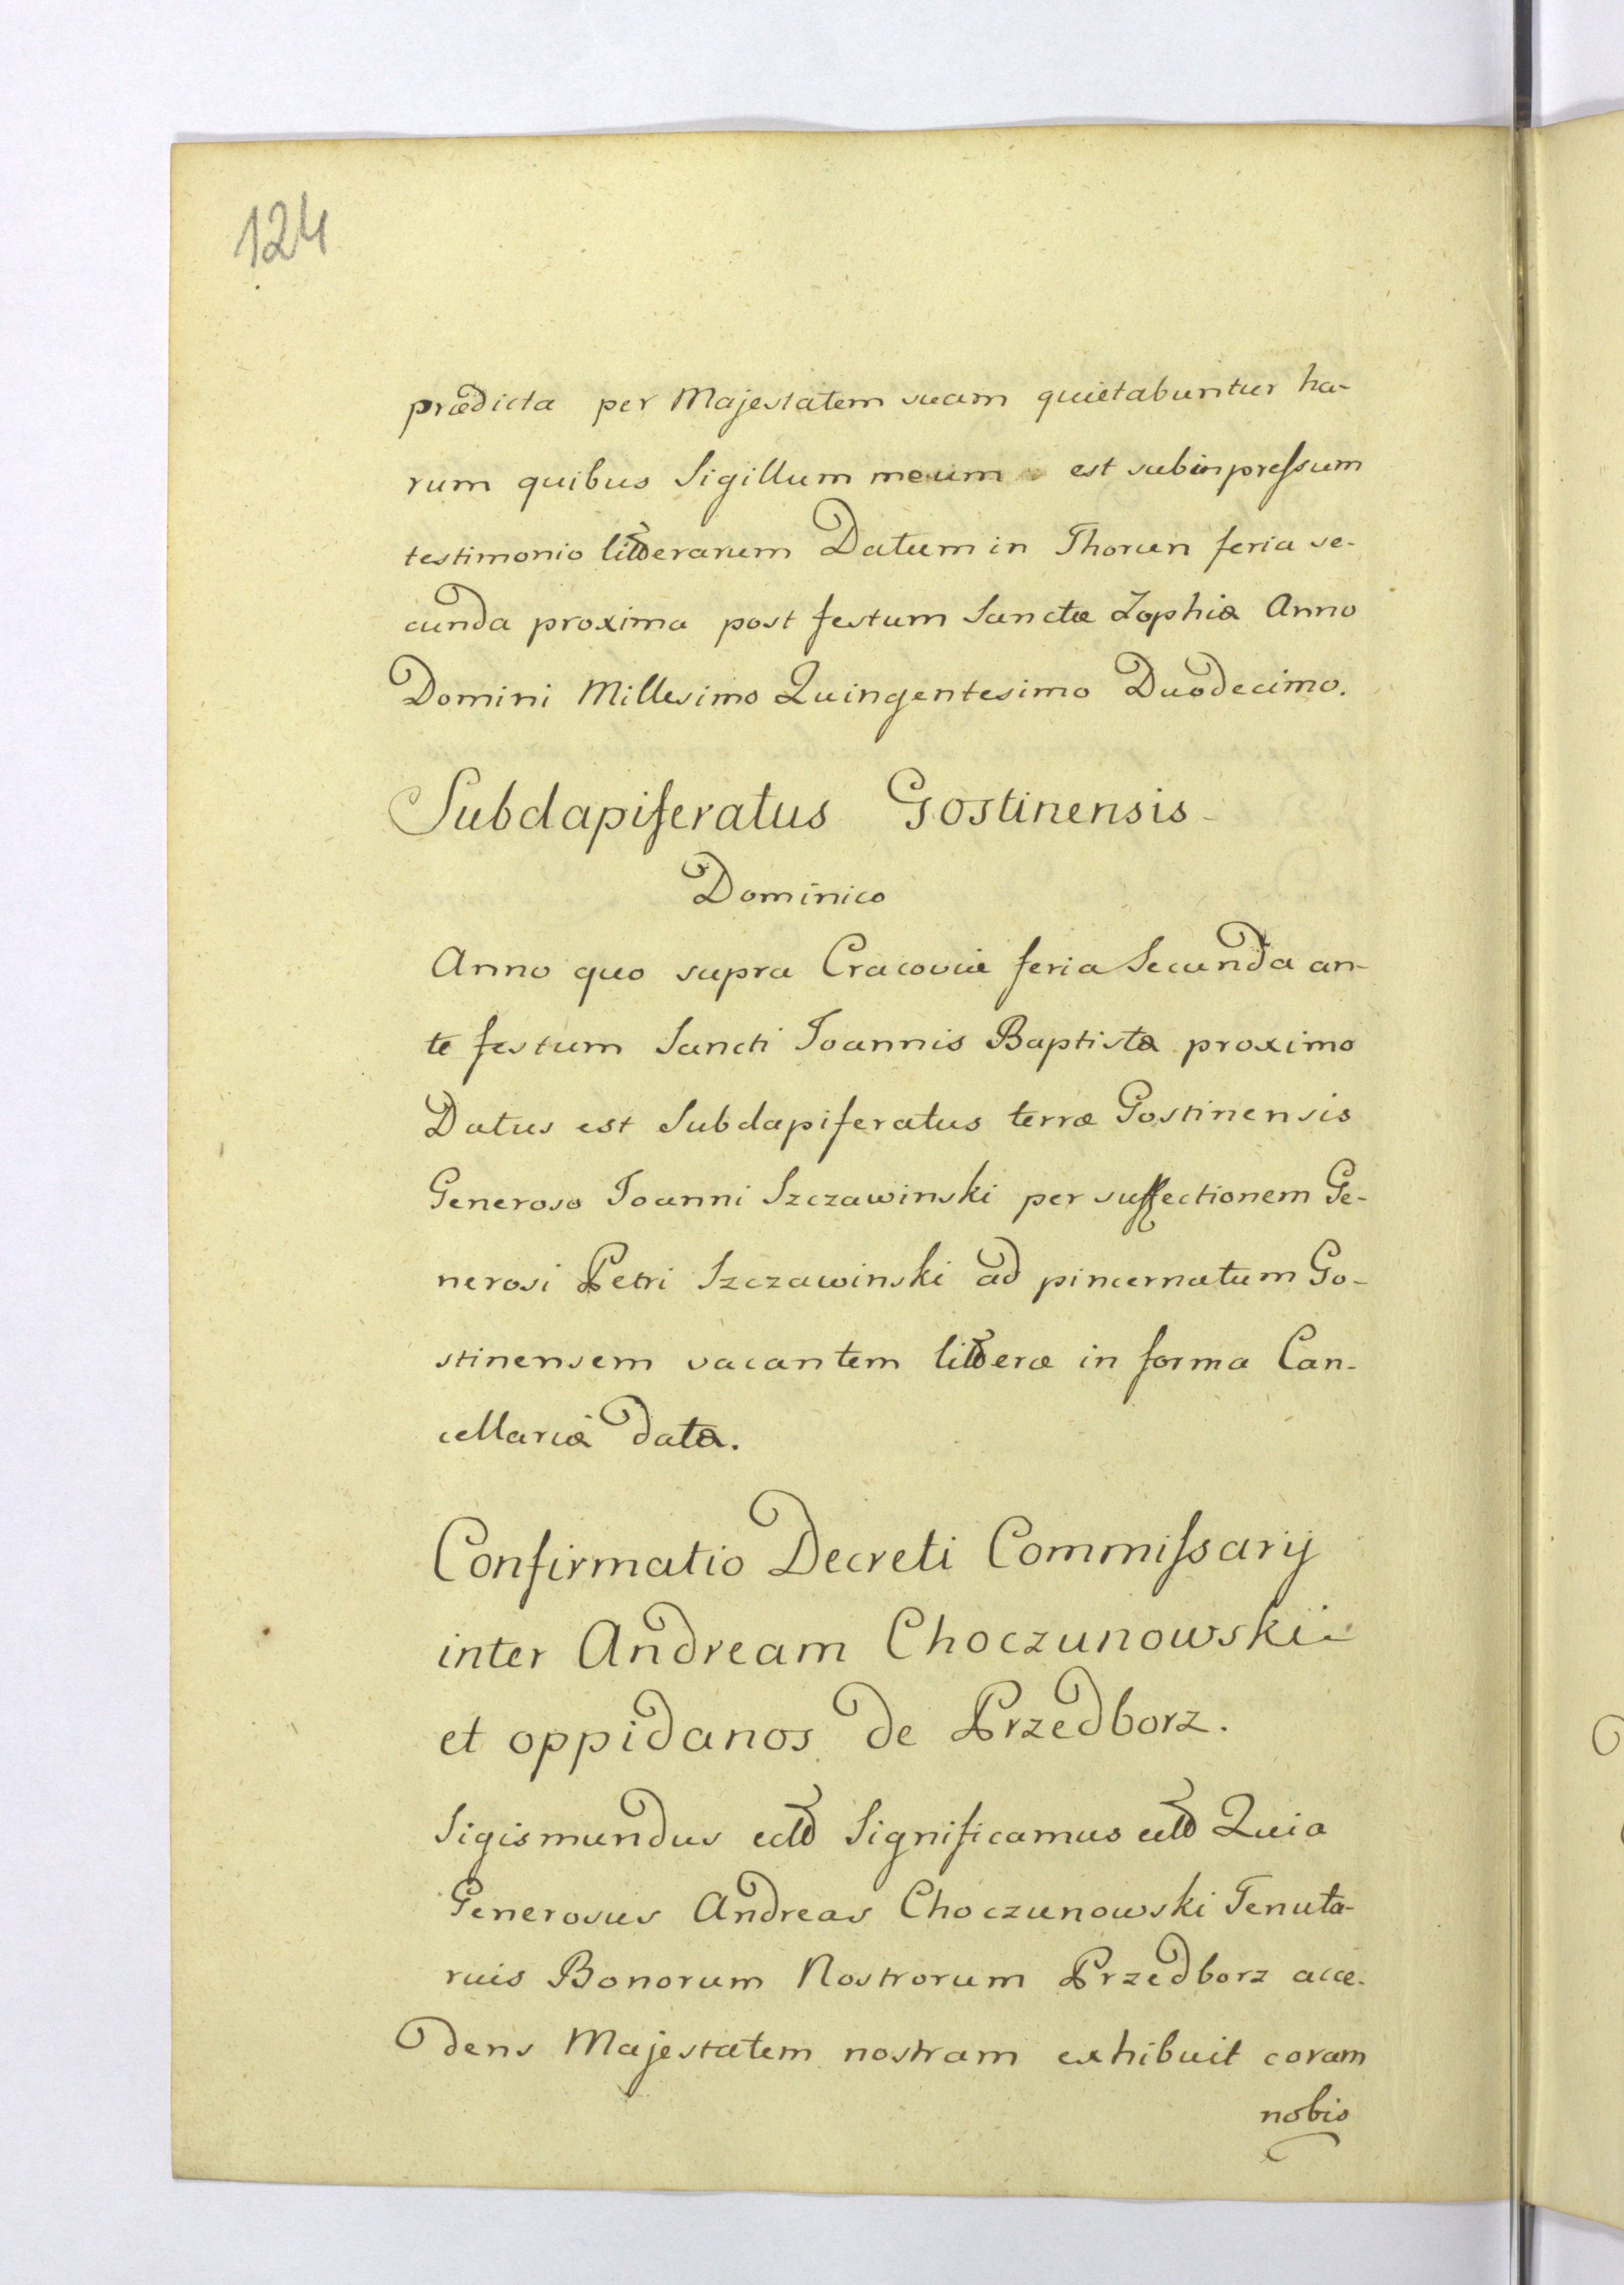 124
prædicta per Majestatem suam quietabuntur ha-
rum quibus Sigillum meum est subinpressum
testimonio litterarum Datum in Thorun feria se-
cunda proxima post festum Sanctæ Zophiæ Anno
Domini Millesimo Quingentesimo Duodecimo.
Subdapiferatus Gostinensis
Dominico
Anno quo supra Cracoviæ feria Secunda an-
te festum Sancti Joannis Baptistæ proximo
Datus est Subdapiferatus terræ Gostinensis
Generoso Joanni Szczawinski per suffectionem Ge-
nerosi Petri Szczawinski ad pincernatum Go-
stinensem vacantem litteræ in forma Can-
cellariæ datæ.
Confirmatio Decreti Commissarij
inter Andream Choczunowski
et oppidanos de Przedborz.
Sigismundus ectt Significamus ectt Quia
Generosus Andreas Choczunowski Tenuta-
rius Bonorum Nostrorum Przedborz acce-
dens Majestatem nostram exhibuit coram
nobis